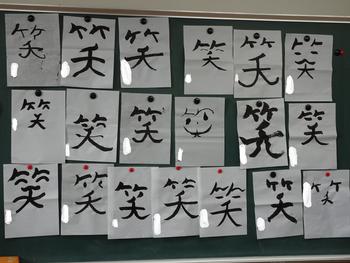 笑 笑 笑 笑 笑 笑
笑 笑 笑 笑 笑 笑
笑 笑 笑 笑 笑 笑 笑